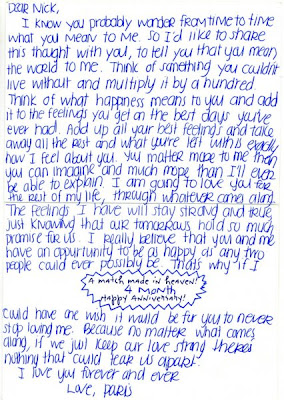 Dear Nick,
I know you probably wonder from time to time
what you mean to me. So I'd like to share
this thought with you, to tell you that you mean
the world to me. Think of something you couldn't
live without and multiply it by a hundred.
Think of what happiness means to you and add
it to the feelings you get on the best days you've
ever had. Add up all your best feelings and take
away all the rest and what you're left with is exactly
how I feel about you. You matter more to me than
you can imagine and much more than I'll ever
be able to explain. I am going to love you for
the rest of my life, through whatever comes along.
The feelings I have will stay strong and true
just knowing that our tomorrows hold so much
promise for us. I really believe that you and me
have an oppurtunity to be as happy as any two
people could ever possibly be. Thats why if I
A match made in heaven!
4 Month
Happy Anniversary!
could have one wish it would be for you to never
stop loving me. Because no matter what comes
along, if we just keep our love strong there's
nothing that could tear us apart.
I love you forever and ever
Love, Paris